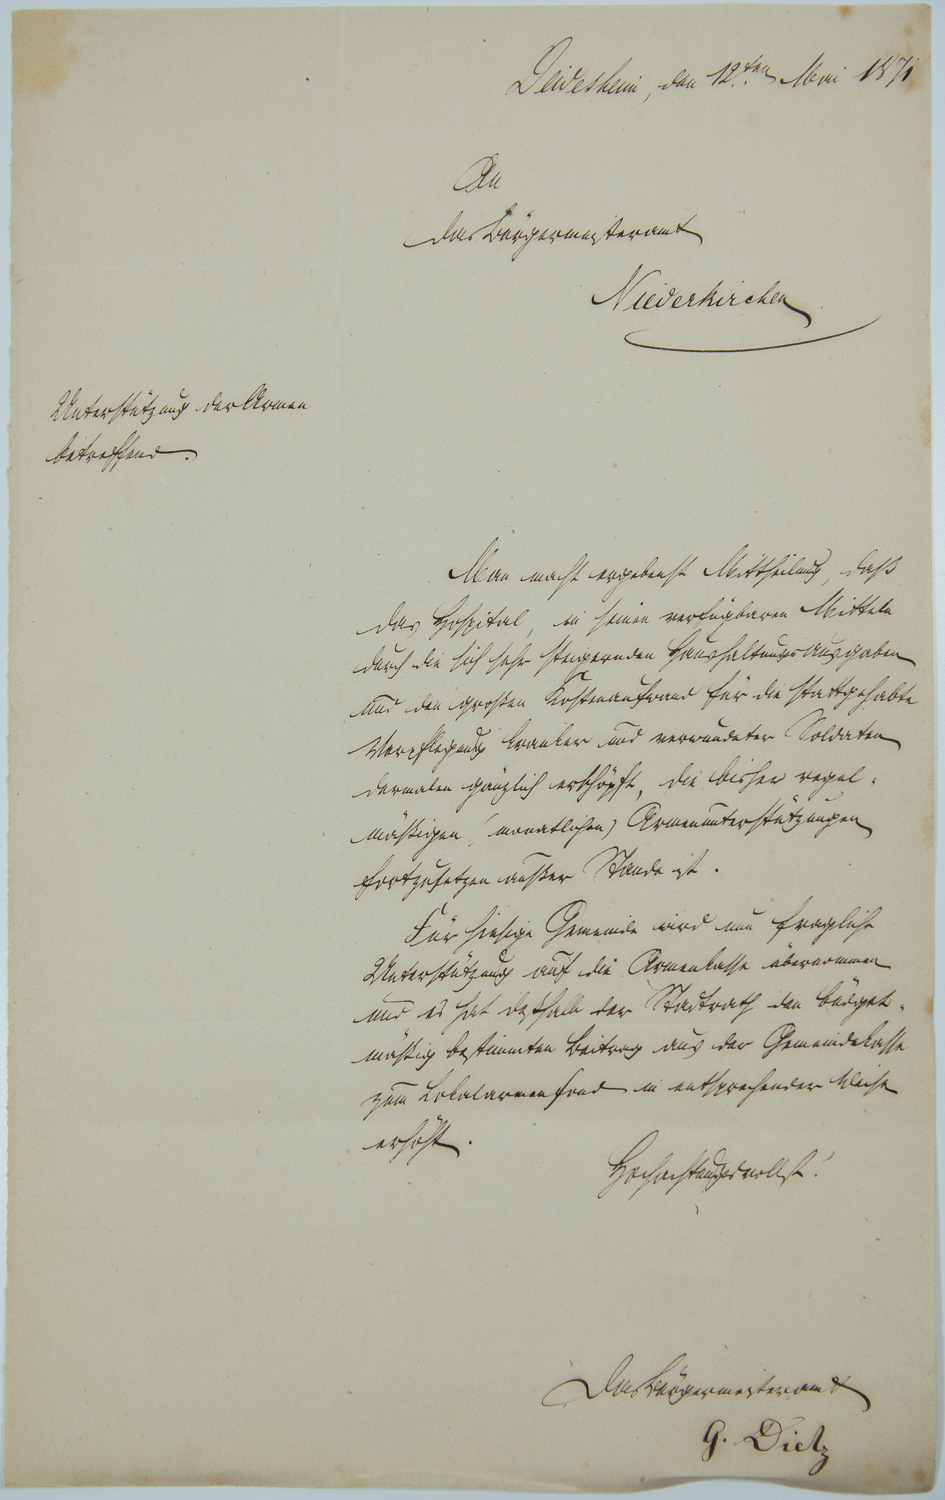 Deidesheim, den 12.ten Mai 1871
An
das Bürgermeisteramt
Niederkirchen
Unterstützung der Armen
betreffend.
Man macht ergebenst Mittheilung, daß
das Hospital, in seinen verfügbaren Mitteln
durch die sich sehr steigernden Haushaltungsausgaben
und den großen Kostenaufwand für die stattgehabte
Verpflegung kranker und verwundeter Soldaten
dermalen gänzlich erschöpft, die bisher regel-
mäßigen (monatlichen) Armenunterstützungen
fortzusetzen außer Stande ist.
Für hiesige Gemeinde wird nun fragliche
Unterstützung auf die Armenkasse übernommen
und es hat deßhalb der Stadtrath den büdget-
mäßig bestimmten Beitrag aus der Gemeindekasse
zum Lokalarmenfond in entsprechender Weise
erhöht.
Hochachtungsvollst!
Das Bürgermeisteramt
G. Dietz